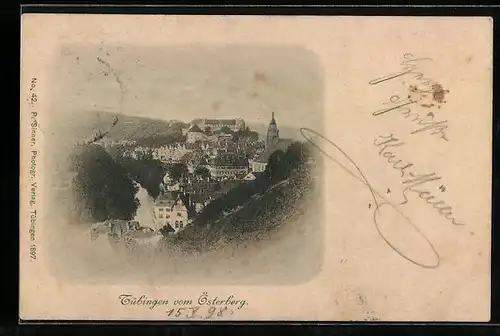 No. 42. P. Sinner, Photogr. Verlag, Tübingen 1897.
Tübingen vom Österberg.
15.5.98.
Karl Müller